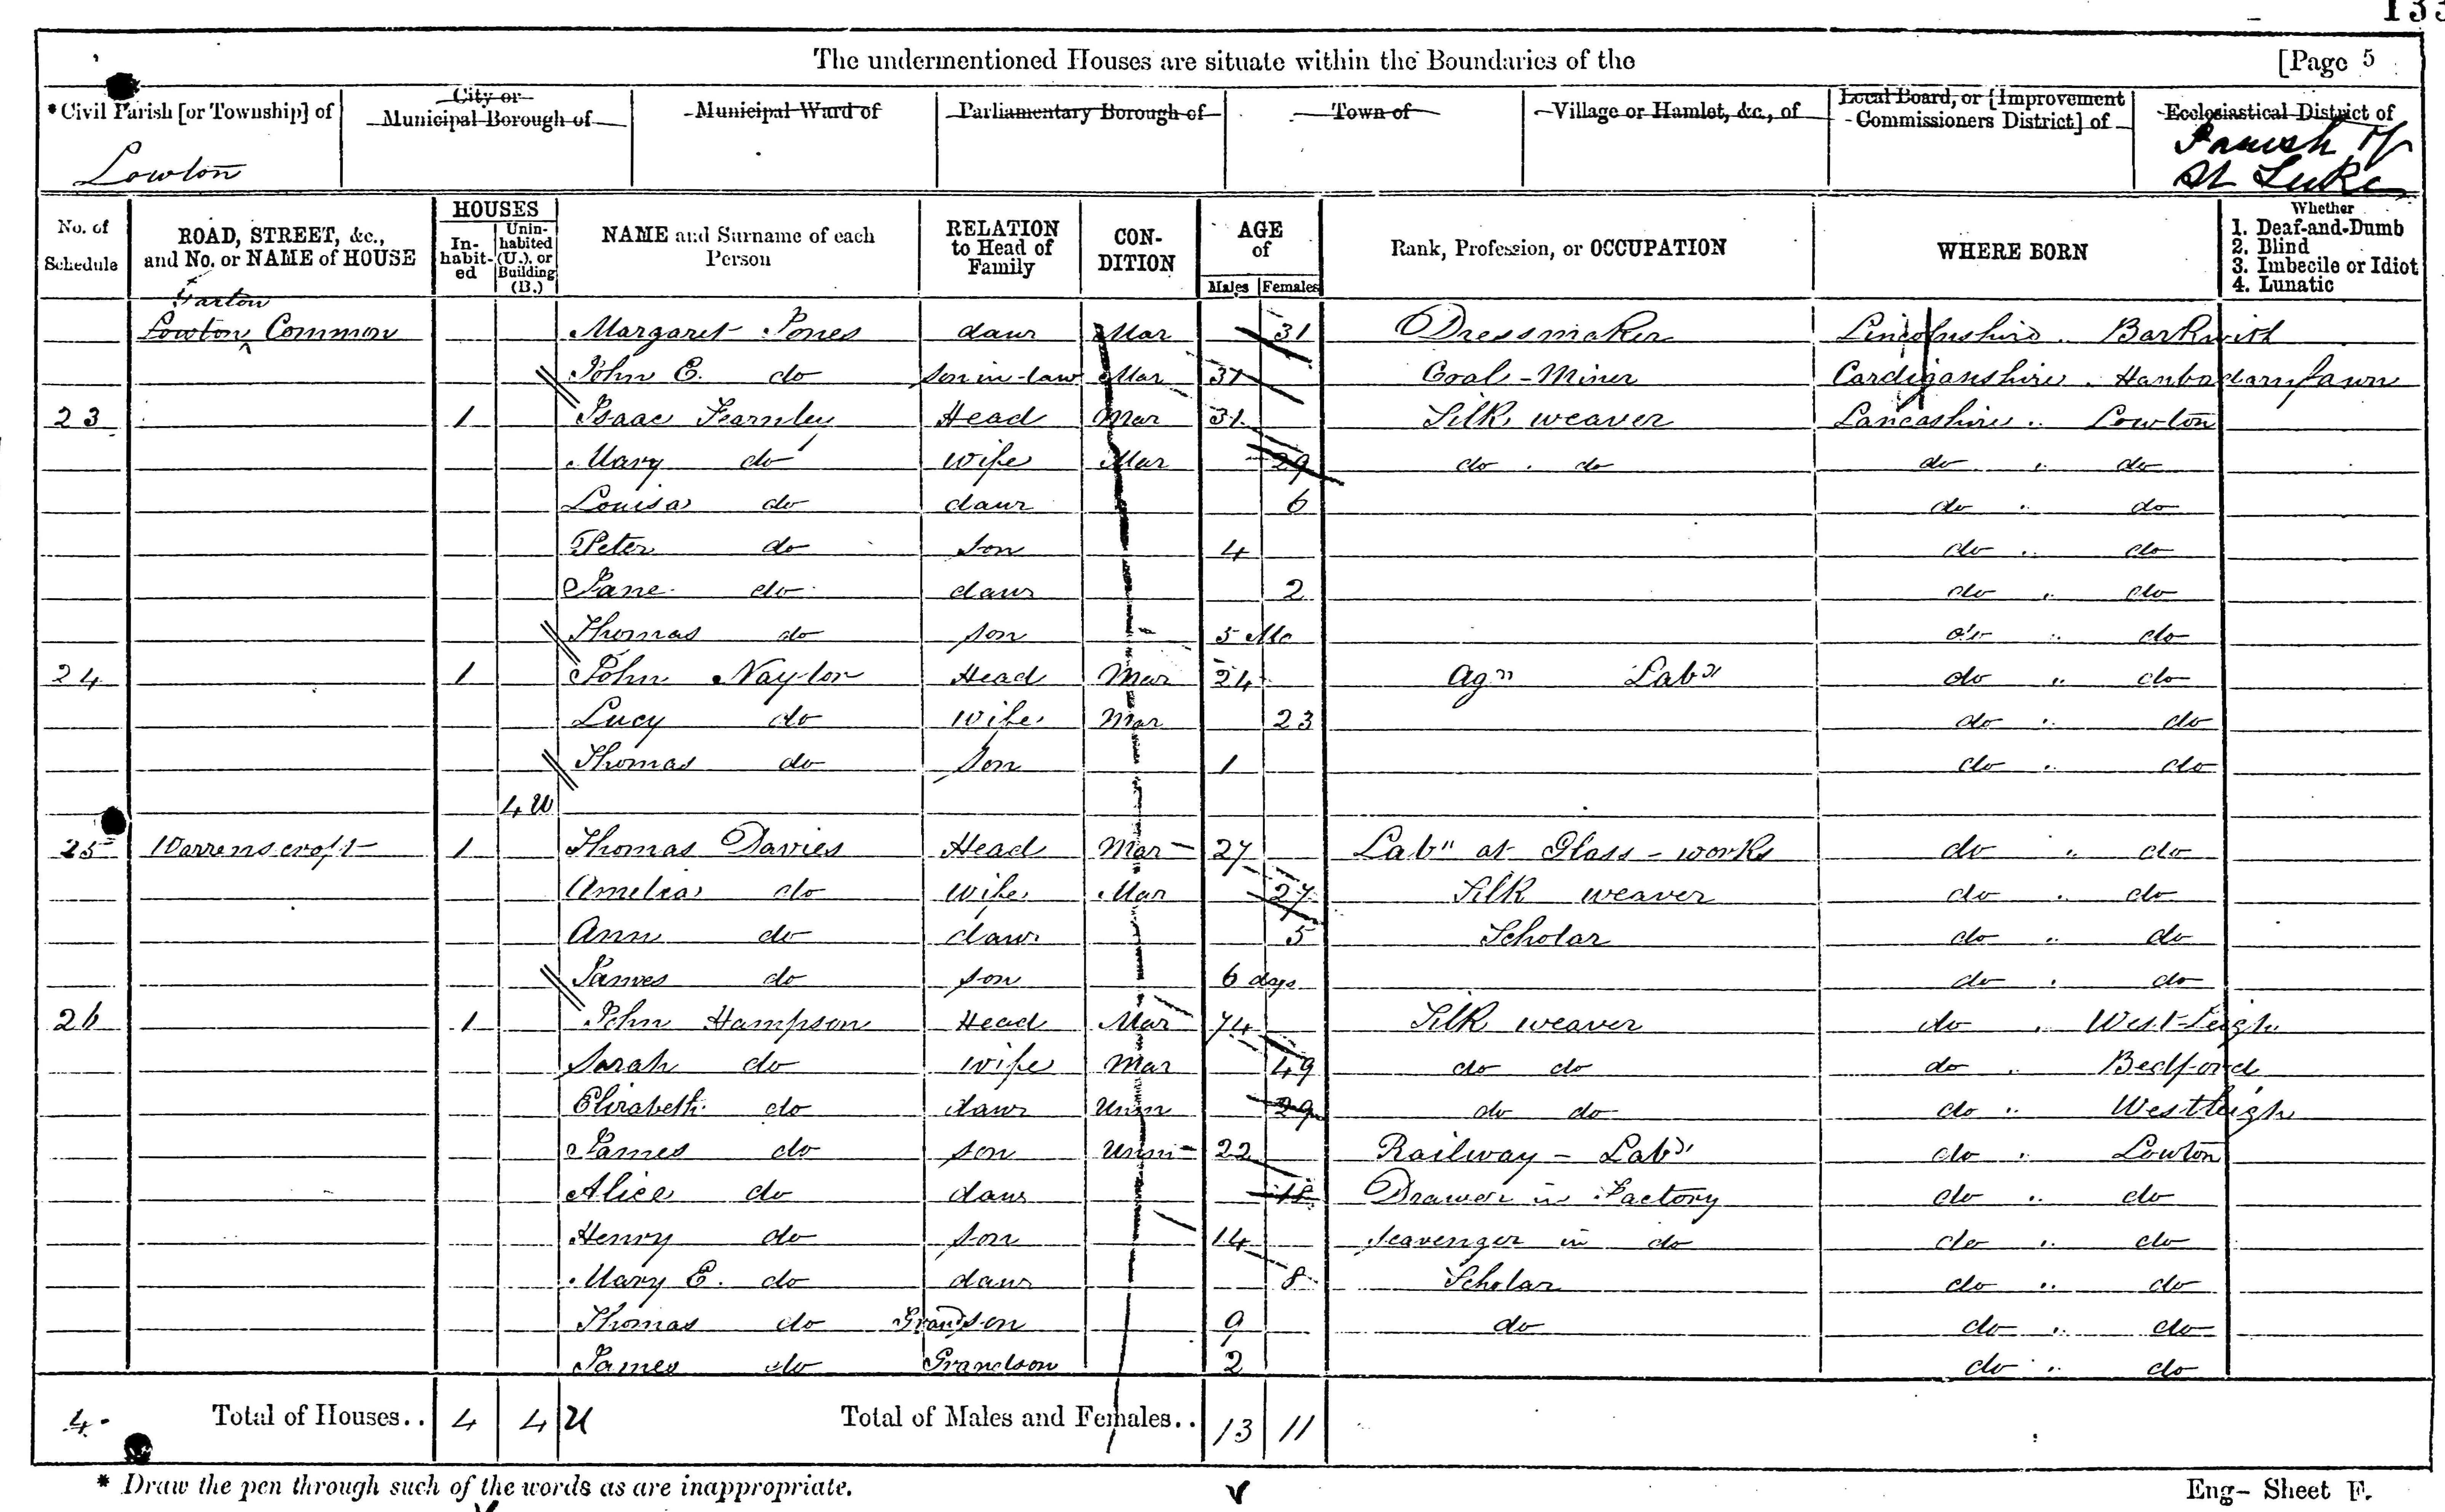 133
The undermentioned Houses are situate within the Boundaries of the [Page 5
* Civil Parish [or Township] of City or Municipal Borough of Municipal Ward of Parliamentary Borough of Town of Village or Hamlet, &c., of Local Board, or [Improvement Commissioners District] of Ecclesiastical District of
Lowton Parish of St Luke
No. of Schedule ROAD, STREET, &c., and No. or NAME of HOUSE HOUSES In-habit-ed Unin-habited (U.), or Building (B.) NAME and Surname of each Person RELATION to Head of Family CON-DITION AGE of Males Females Rank, Profession, or OCCUPATION WHERE BORN Whether 1. Deaf-and-Dumb 2. Blind 3. Imbecile or Idiot 4. Lunatic
Lowton Common Margaret Jones daur Mar 31 Dressmaker Lincolnshire Barkwith
John E. do Son in-law Mar 31 Coal-Miner Cardiganshire
23 1 Isaac Fearnley Head Mar 31 Silk weaver Lancashire Lowton
Mary do wife Mar 29 do do do do
Louisa do daur 6 do do
Peter do Son 4 do do
Jane do daur 2 do do
Thomas do Son 5 Mo do do
24 1 John Naylor Head Mar 24 Agrl Labr do do
Lucy do wife Mar 23 do do
Thomas do Son 1 do do
4 U
25 Warrenscroft 1 Thomas Davies Head Mar 27 Labr at Glass-works do do
Amelia do wife Mar 27 Silk weaver do do
Ann do daur 5 Scholar do do
James do Son 6 dys do do
26 1 John Hampson Head Mar 74 Silk weaver do West-Leigh
Sarah do wife Mar 49 do do do Bedford
Elizabeth do daur Unm 29 do do do Westleigh
James do Son Unm 22 Railway-Labr do Lowton
Alice do daur 18 Drawer in Factory do do
Henry do Son 14 Scavenger in do do do
Mary E. do daur 8 Scholar do do
Thomas do Grandson 9 do do do
James do Grandson 2 do do
4 Total of Houses.. 4 4 U Total of Males and Females.. 13 11
* Draw the pen through such of the words as are inappropriate. Eng- Sheet F.